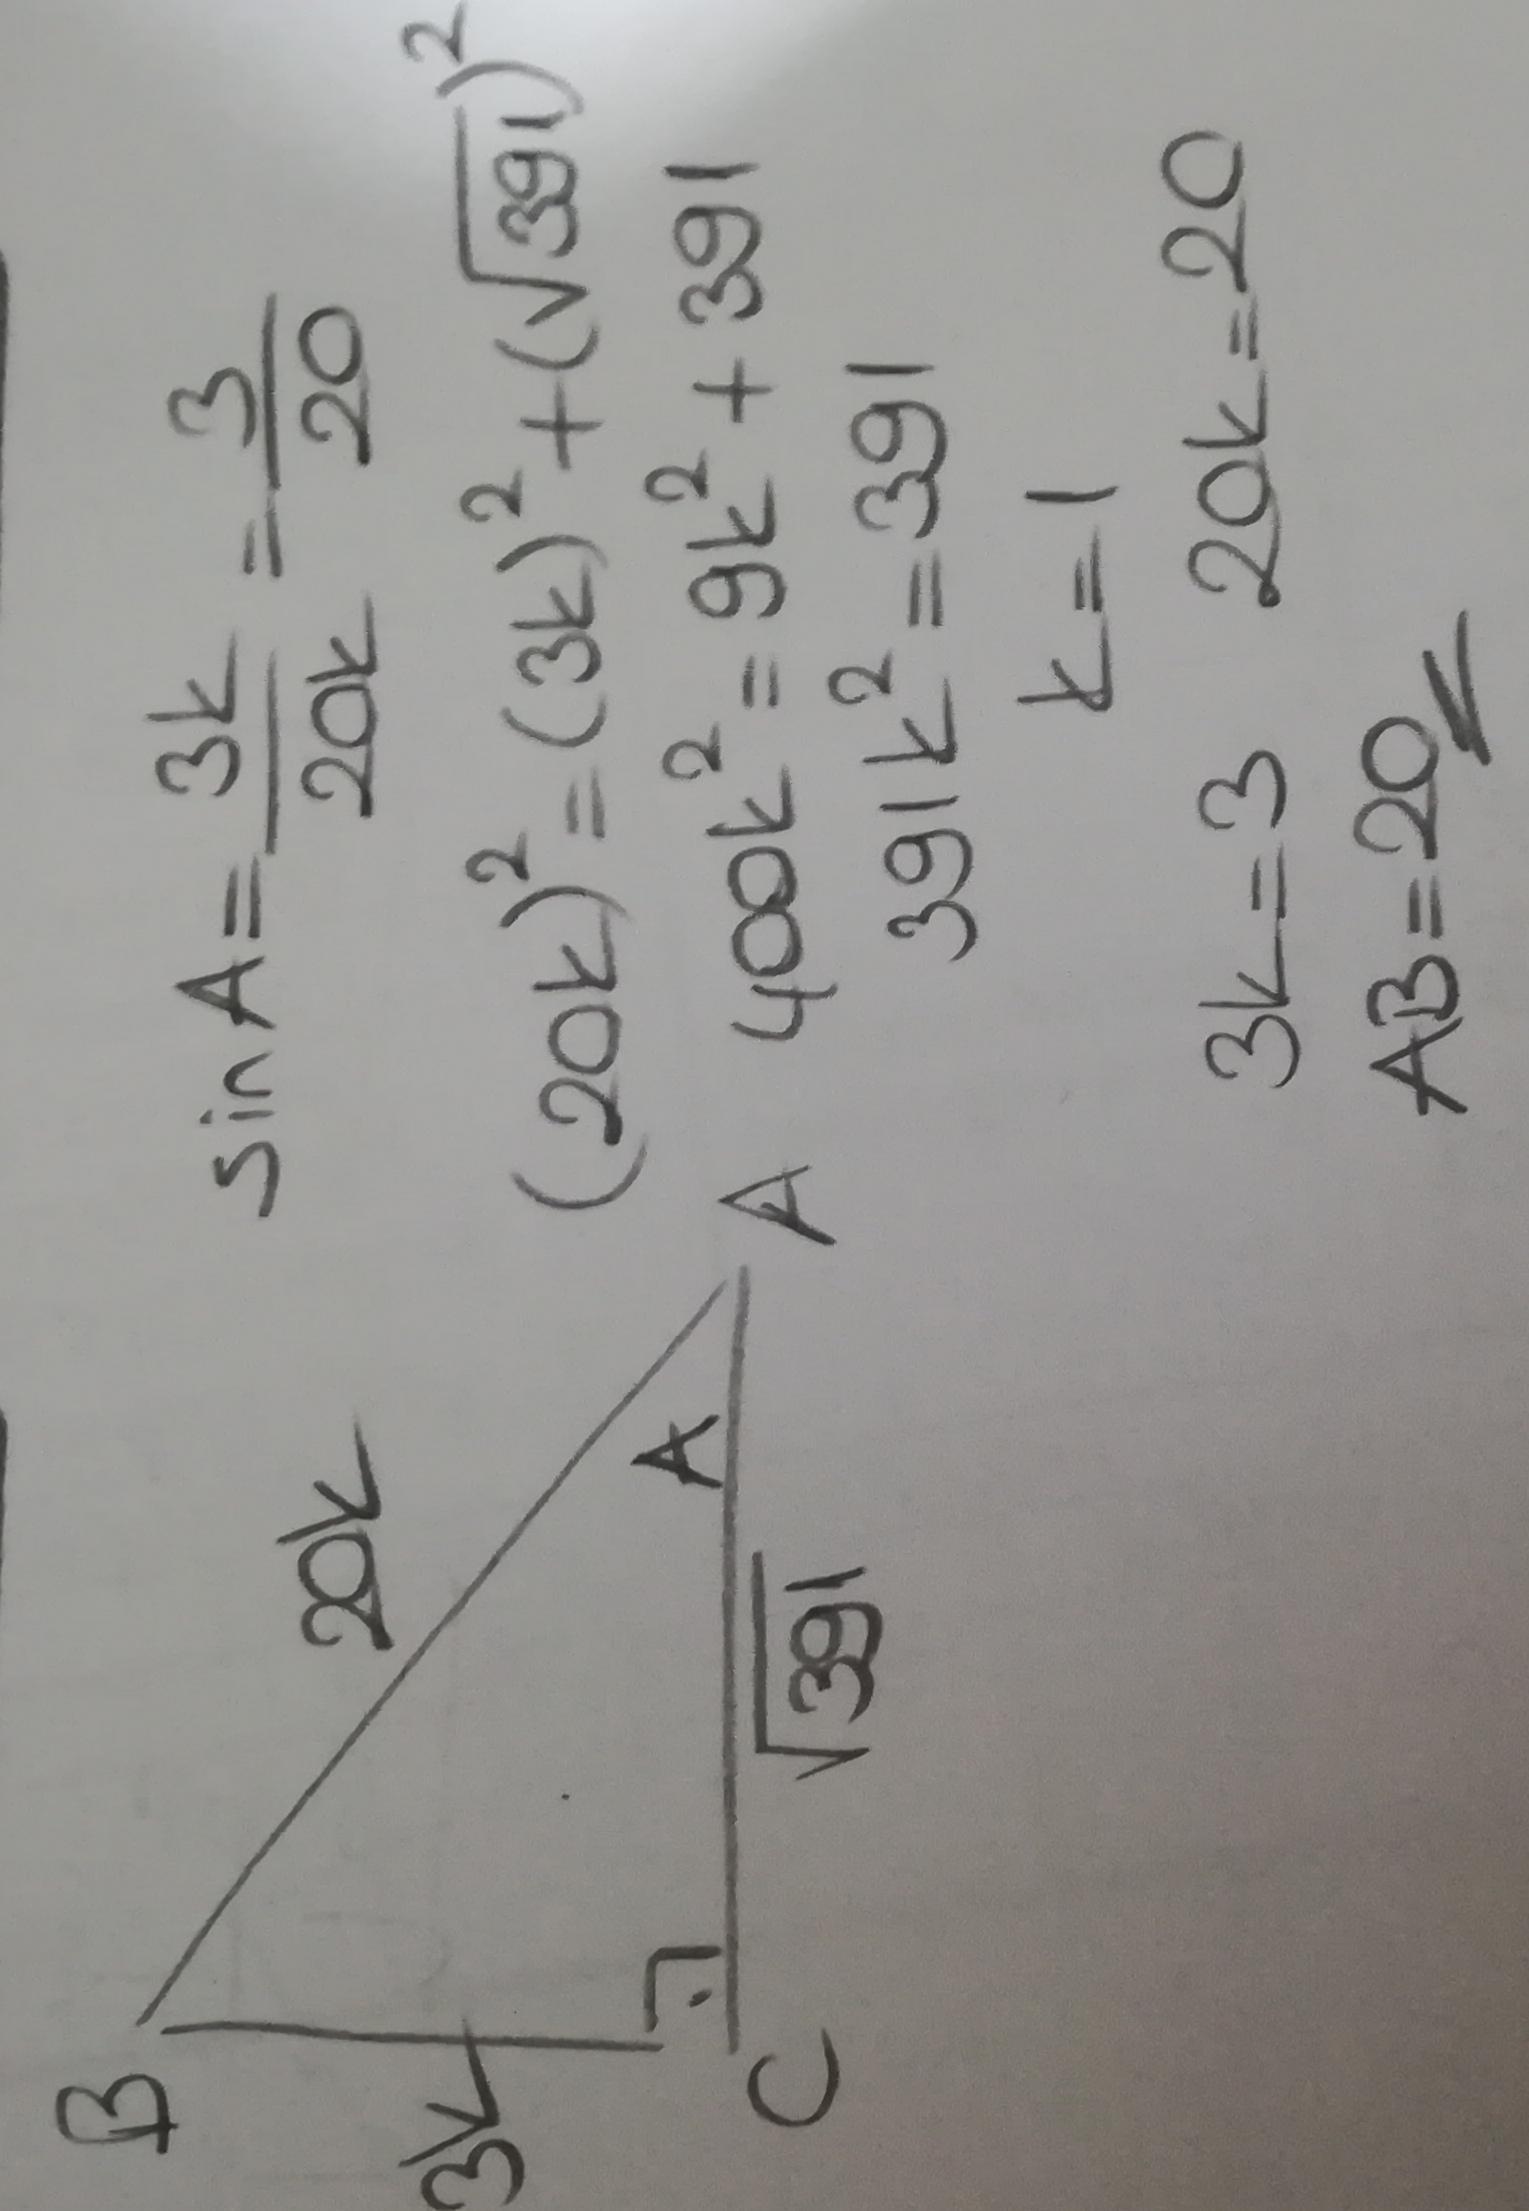 B
20k
3k
A
C
√391
A
sin A = 3k/20k = 3/20
(20k)² = (3k)² + (√391)²
400k² = 9k² + 391
391k² = 391
k = 1
3k = 3 20k = 20
AB = 20